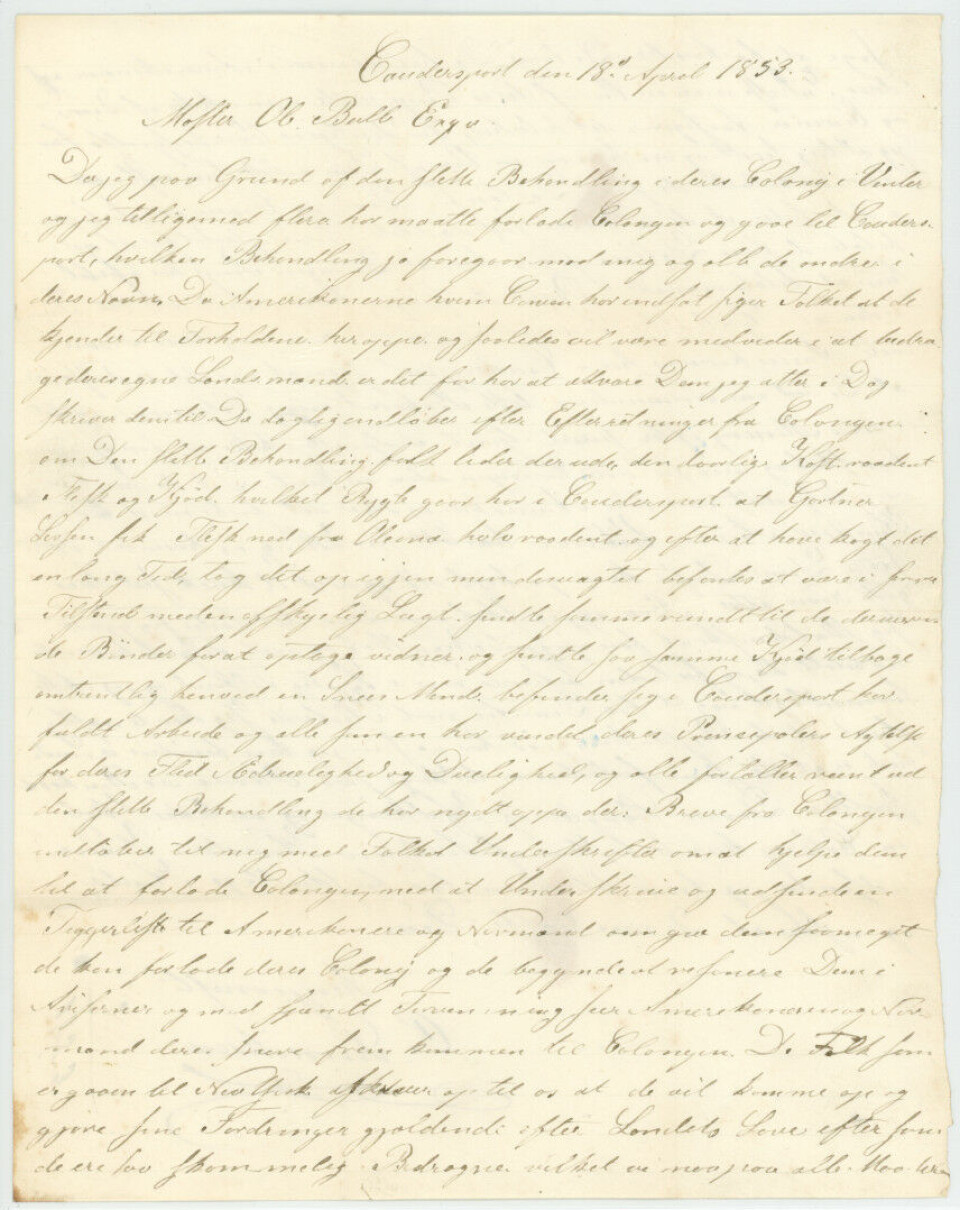 Coudersport den 18d. April 1853.
Mester Ole Bull Esqv.
Da jeg paa Grund af den slette Behandling i deres Colony i Vinter
og jeg tilligemed flera har maatte forlade Colonyen og gaae til Couders-
port, hvilken Behandling jo foregaar mod mig og alle de andre i
deres Navn, Da Amerikanerne hvem Cowin har indsat siger Folket at de
kjender til Forholdene heroppe og saaledes vil være medvider i at bedra-
ge deres egne Landsmænd er det for har at advare Dem jeg atter i Dag
skriver dem til Da daglig endløber efter Efterretninger fra Colonyen
om Den slette Behandling folk lider der ude, den daarlig Kost raadent
Flesk og Kjöd hvilket Rygte gaar her i Coudersport at Gartner
fik Flesk ned fra Oleona halv raadent og efter at have kogt det
en lang Tid, tog det op igjen men desuagtet befantes at være i
Tilstand med en afskyelig Lugt sendte samme rundt til de derværen
de Bönder for at optage vidner og sendte saa samme Kjöd tilbage
omtrentlig henved en Snees Mænd befinder sig i Coudersport har
fuldt Arbeide og alle som en har vundet deres Principalers Agtelse
for deres Flid Ædruelighed og Duelighed, og alle fortæller rundt ud
den slette Behandling de har nydt oppe der. Breve fra Colonyen
indløber til mig med Folkets Underskrifter om at hjelpe dem
til at forlade Colonyen, med at Underskrive og udsende en
Tiggerliste til Amerikanere og Normænd om give dem saameget
de kan forlade deres Colony og de begynder at resonere Dem i
Aviserne og med Forvendning seer Amerikanerne og Nor
mænd deres frem kommen til Colonyen. De Folk som
er gaaen til New York skriver op til os at de vil komme op og
gjøre sine Fordringer gjældende efter Landets Love eftersom
de ere saa skammelig Bedragne vilket vi maa paa alle Maader